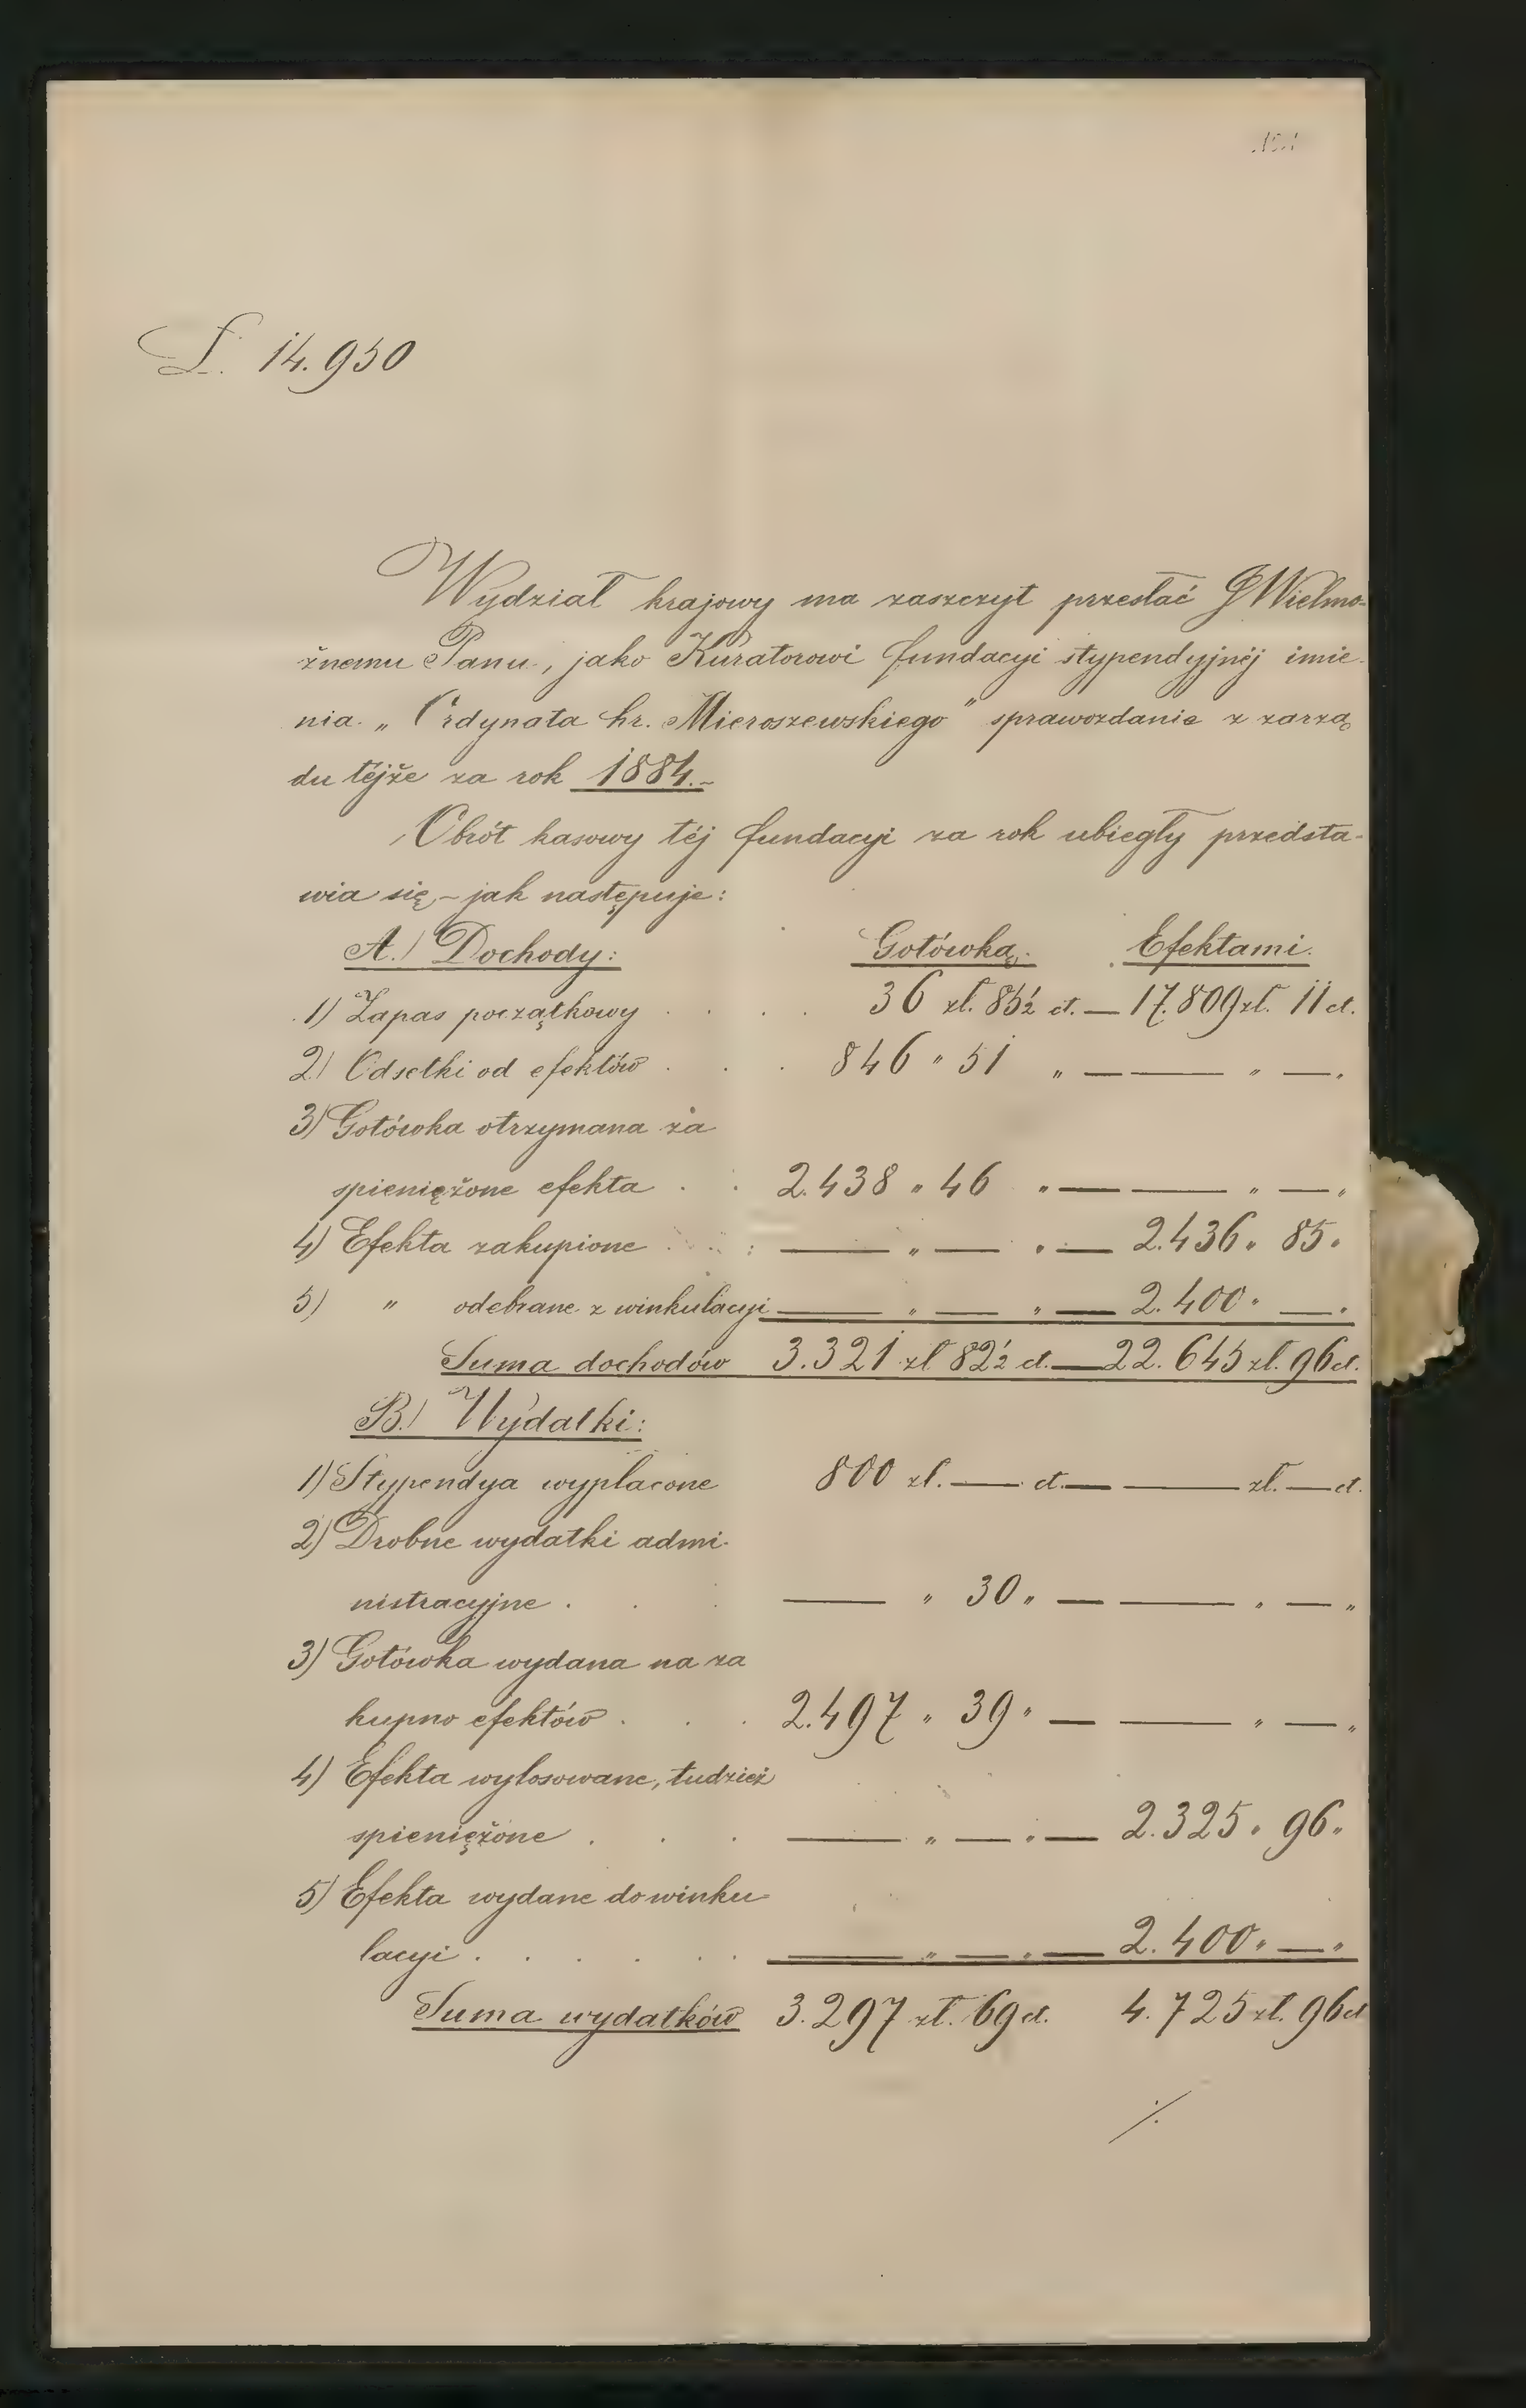 L. 14.950
Wydział krajowy ma zaszczyt przesłać JWielmo-
żnemu Panu, jako Kuratorowi fundacyi stypendyjnéj imie-
nia „Ordynata hr. Mieroszewskiego" sprawozdanie z zarzą
du téjże za rok 1884.-
Obrót kasowy téj fundacyi za rok ubiegły przedsta-
wia się,- jak następuje:
A.) Dochody: Gotówką. Efektami.
1) Zapas początkowy . . . . 36 zł. 85½ ct. — 17.809 zł. 11 ct.
2) Odsetki od efektów . . . 846 " 51 " — — " — "
3) Gotówka otrzymana za
spieniężone efekta . . 2.438 " 46 " — — " — "
4) Efekta zakupione . . . : — " — " — 2.436 " 85 "
5) " odebrane z winkulacyi — " — " — 2.400 " — "
Suma dochodów 3.321 zł 82½ ct. — 22.645 zł. 96 ct.
B.) Wydatki:
1) Stypendya wypłacone 800 zł. — ct. — — zł. — ct.
2) Drobne wydatki admi-
nistracyjne . . . — " 30 " — — " — "
3) Gotówka wydana na za
kupno efektów . . . 2.497 " 39 " — — " — "
4) Efekta wylosowane, tudzież
spieniężone . . . — " — " — 2.325 " 96 "
5) Efekta wydane do winku-
lacyi . . . . . . — " — " — 2.400 " — "
Suma wydatków 3.297 zł. 69 ct. 4.725 zł. 96 ct
·/.